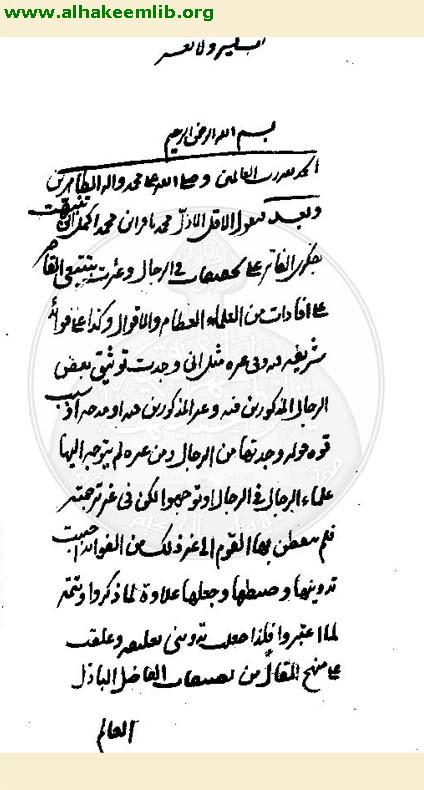 www.alhakeemlib.org
بسم الله الرحمن الرحيم
الحمد لله رب العالمين وصلى الله على محمد وآله الطاهرين
وبعد فيقول الاقل الاذل محمد باقر ابن محمد اكمل اني تنبهت
بفكري الفاتر على تحقيقات في الرجال وعثرت بتتبعي القاصر
على افادات من العلماء العظام والاقوال وكذا على فوائد
شريفة فيه وفي غيره مثل اني وجدت توثيق بعض
الرجال المذكورين فيه وغير المذكورين فيه او مدحه او سبب
قوة قوله وجدتها من الرجال ومن غيره لم يتوجه اليها
علماء الرجال في الرجال او توجهوا لكن في غير ترجمته
فلم يتفطن بها القوم الى غير ذلك من الفوائد احببت
تدوينها وضبطها وجعلها علاوة لما ذكروا وتتمة
لما اعتبروا فلذا جعلت تدويني تعليقة وعلقت
على منهج المقال من تصنيفات الفاضل الباذل
العالم